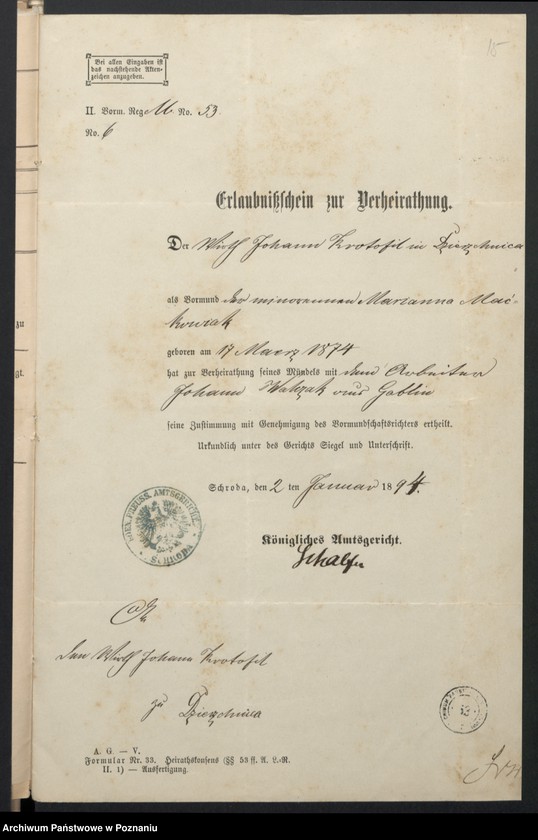 15
Bei allen Eingaben ist
das nachstehende Akten-
zeichen anzugeben.
II. Vorm. Reg. M No. 53.
No. 6
Erlaubnißschein zur Verheirathung.
Der Wirth Johann Krotofil in Dzierchnica
als Vormund der minorennen Marianna Mać-
kowiak
geboren am 17 Maerz 1874
hat zur Verheirathung seines Mündels mit dem Arbeiter
Johann Walczak aus Gablin
seine Zustimmung mit Genehmigung des Vormundschaftsrichters ertheilt.
Urkundlich unter des Gerichts Siegel und Unterschrift.
Schroda, den 2 ten Januar 1894.
KOEN. PREUSS. AMTSGERICHT
SCHRODA
Königliches Amtsgericht.
An
den Wirth Johann Krotofil
zu Dzierchnica
A. G. — V.
Formular Nr. 33. Heirathskonsens (§§ 53 ff. A. L.-R.
II. 1) — Ausfertigung.
zu
gt.
Archiwum Państwowe w Poznaniu